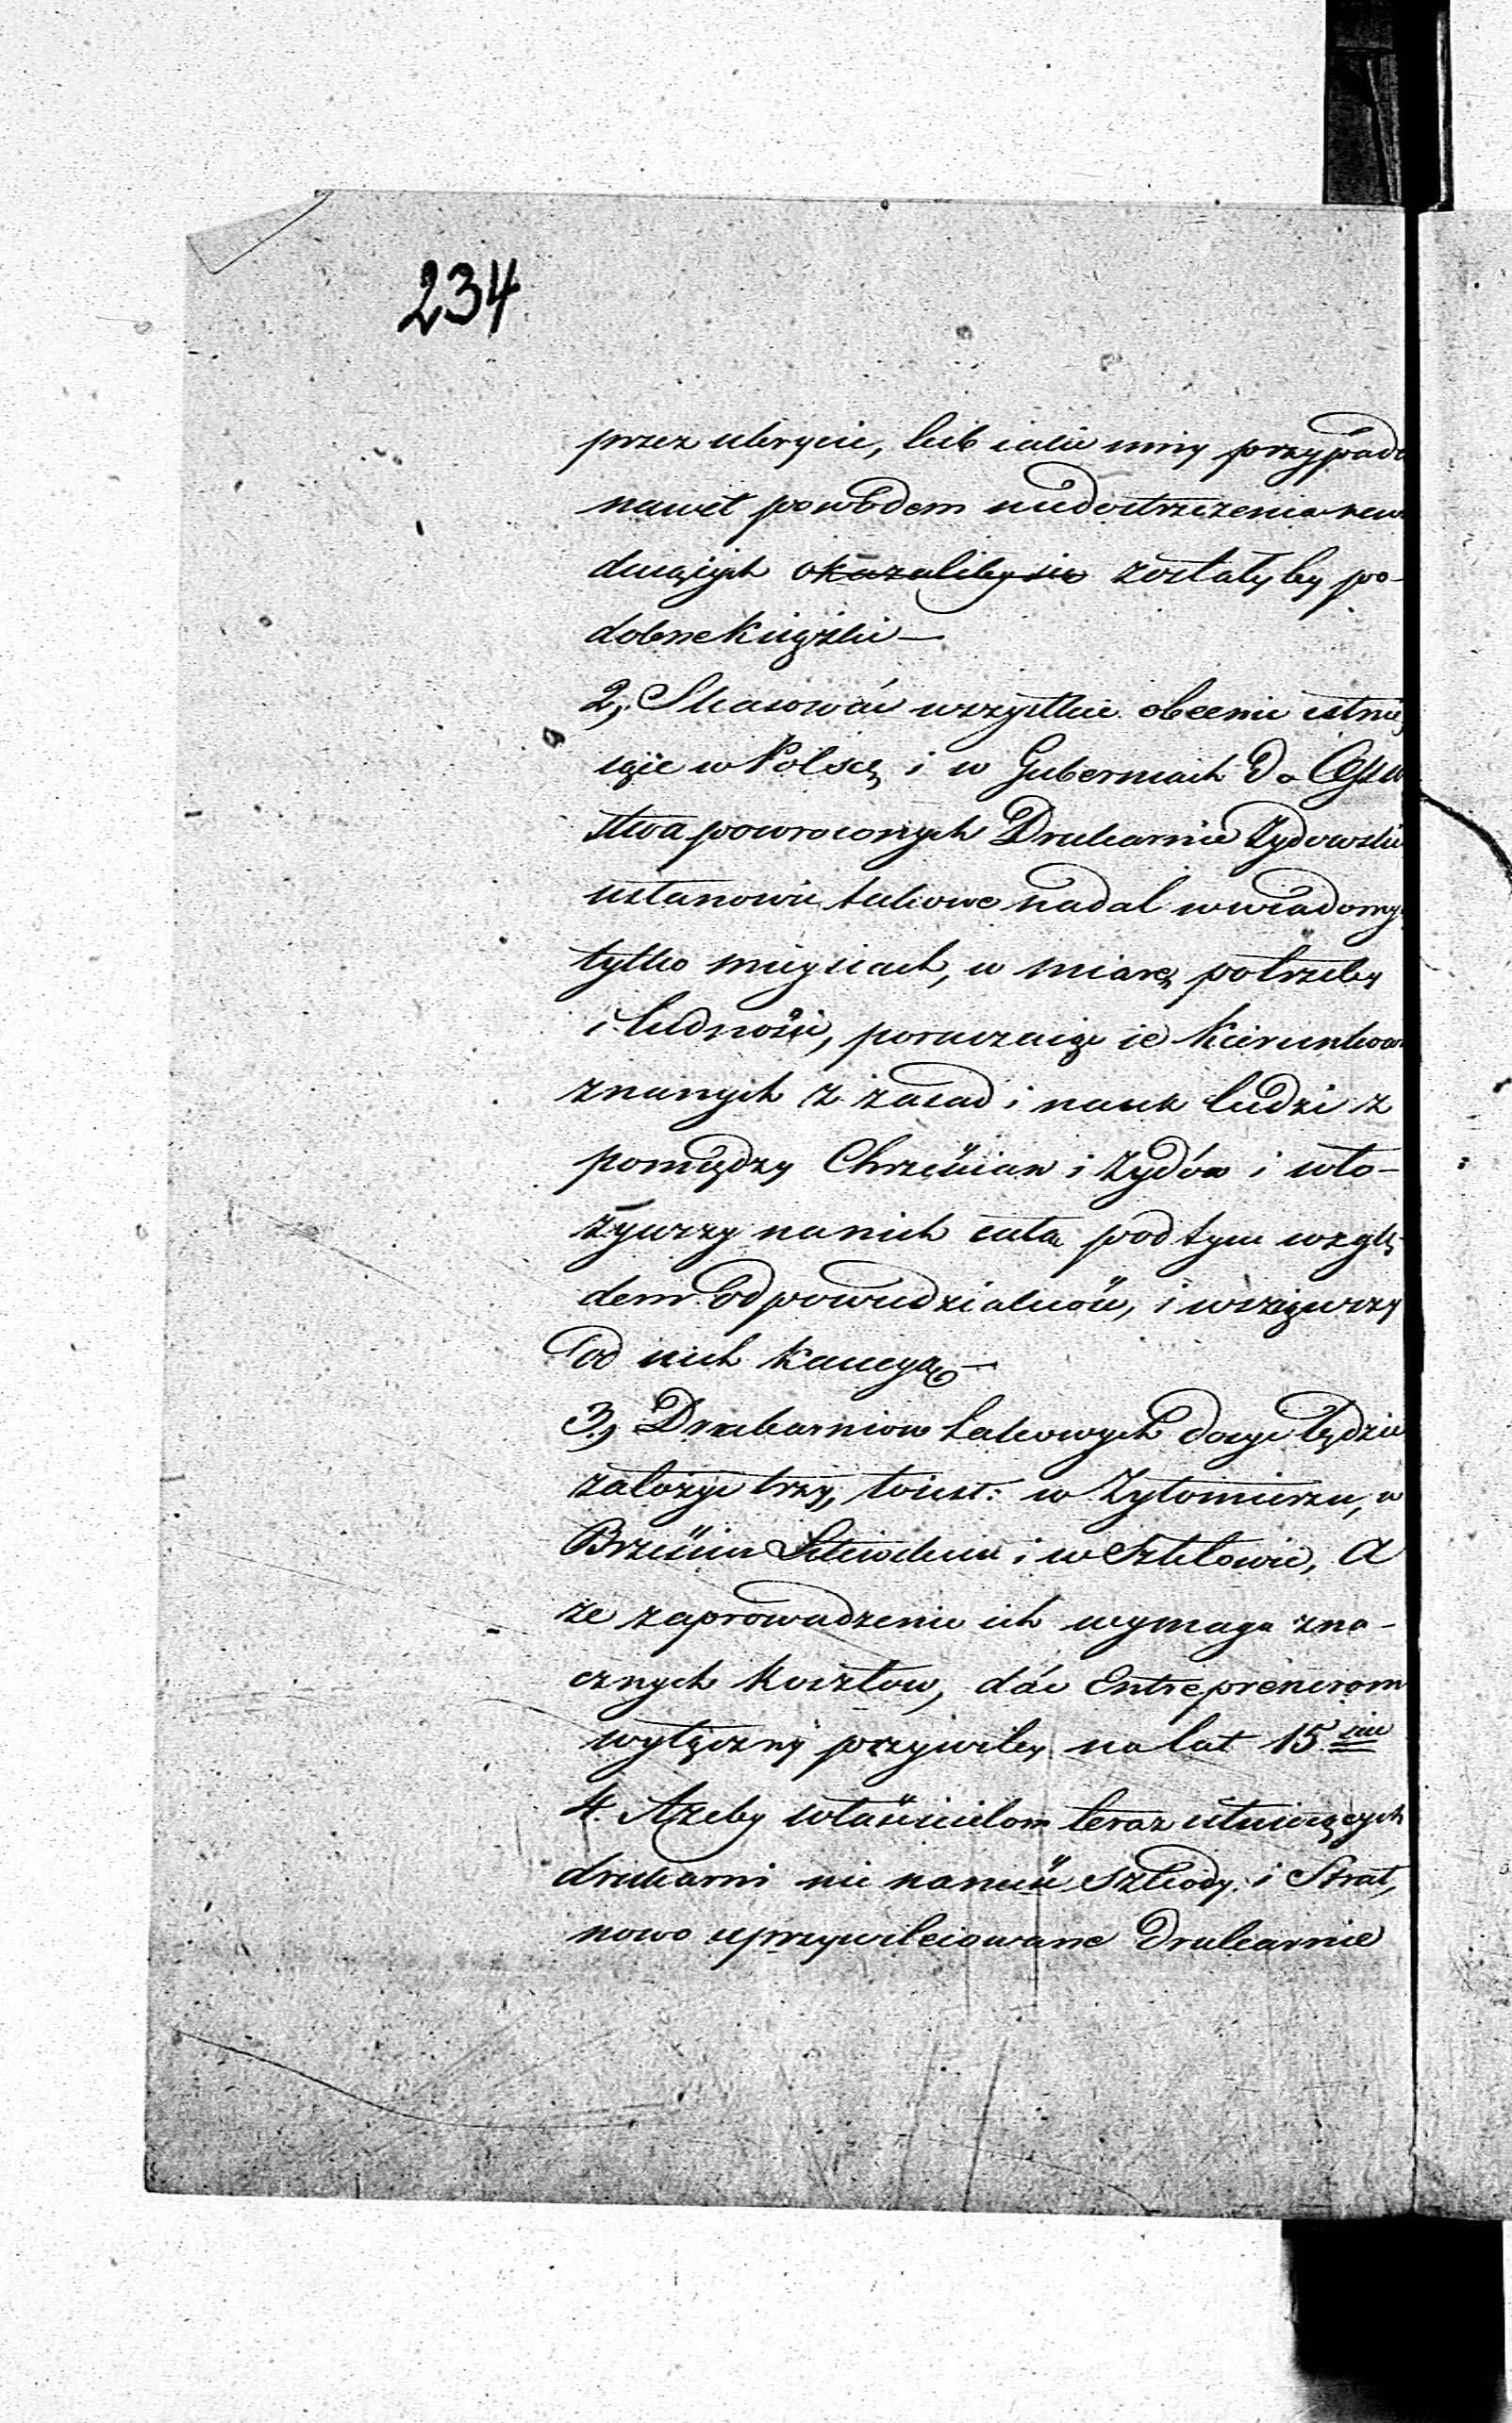 234
przez ukrycie, lub iakie inny przypade
nawet powodem niedostrzeżenia rew
duiących okazaliby sie zostały by po-
dobne Książki —
2, Skasować wszystkie obecnie istnie
iące w Polscę i w Guberniach Do Cesa
stwa powroconych Drukarnie Żydowskie
ustanowić takowe nadal w wiadomy
tylko mieyscach, w miarę potrzeby
i ludności, poruczaiąc ie kierunkow
znanych z zasad i nauk ludzi z
pomiędzy Chrześcian i Żydów i wło-
żywszy na nich cała pod tym wzglę-
dem Odpowiedzialność, i wziąwszy
od nich Kaucyą —
3, Drukarniow takowych dosyć będzie
założyć trzy, to iest: w Żytomierzu, w
Brześciu Litewskim i w Szkłowie, A
że zaprowadzenie ich wymaga zna-
cznych Kosztow, dáć Entreprenerom
wyłączny przywiley na lat 15 cie
4. Ażeby właścicielom teraz istnieiących
drukarni nie nanieść szkody i Strat,
nowo uprzywileiowane Drukarnie